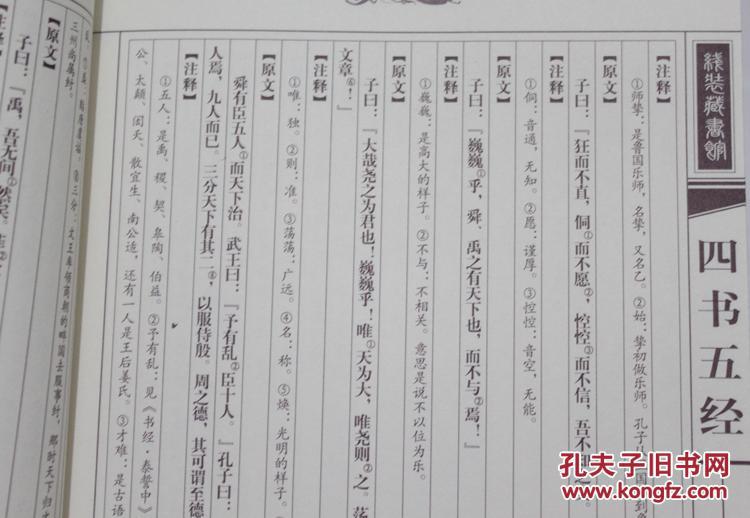 线装藏書館
四书五经
【注释】
①师挚：是鲁国乐师，名挚，又名乙。②始：挚初做乐师。孔子从
【原文】
子曰：『狂而不直，侗①而不愿②，悾悾③而不信，吾不知之
【注释】
①侗：音通，无知。②愿：谨厚。③悾悾：音空，无能。
【原文】
子曰：『巍巍①乎，舜、禹之有天下也，而不与②焉！』
【注释】
①巍巍：是高大的样子。②不与：不相关。意思是说不以位为乐。
【原文】
子曰：『大哉尧之为君也！巍巍乎！唯①天为大，唯尧则②之。荡
文章⑥！』
【注释】
①唯：独。②则：准。③荡荡：广远。④名：称。⑤焕：光明的样子。
【原文】
舜有臣五人①而天下治。武王曰：『予有乱②臣十人。』孔子曰：
人焉，九人而已。三分天下有其二④，以服侍殷。周之德，其可谓至德
【注释】
①五人：是禹、稷、契、皋陶、伯益。②予有乱：见《书经·泰誓中》
公、太颠、闳夭、散宜生、南公适，还有一人是王后姜氏。③才难：是古语
三分：文王率领商朝的畔国去服事纣，那时天下归
三州尚属纣。
【原文】
子曰：『禹，吾无间①然矣。菲②
【注释】
孔夫子旧书网
www.kongfz.com